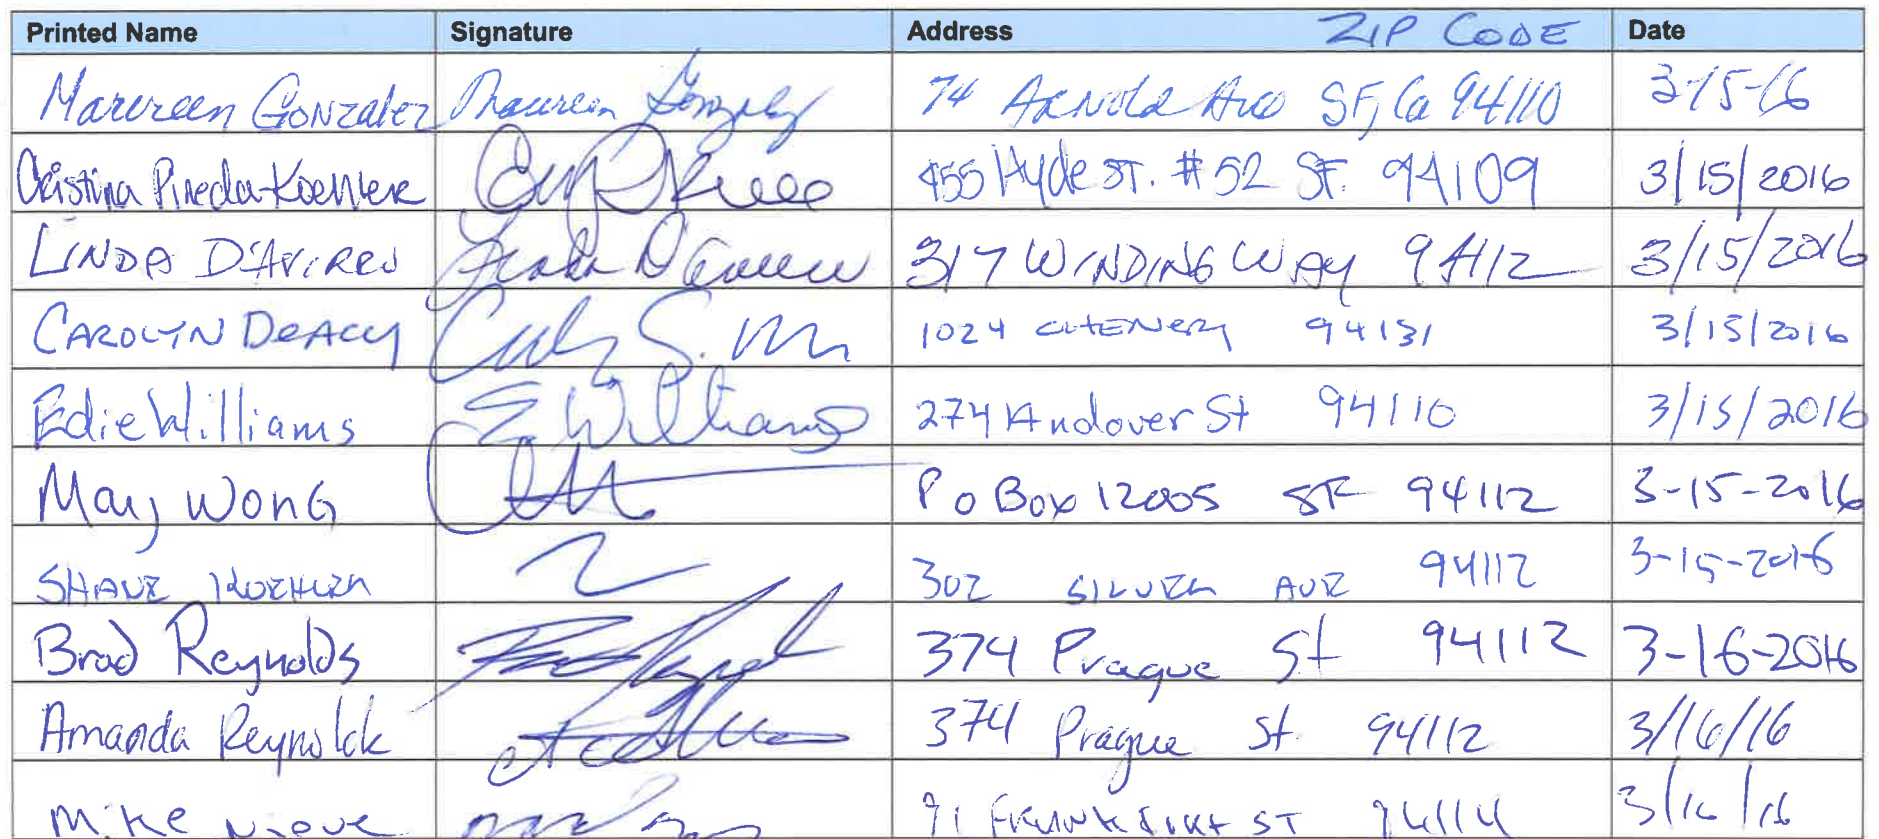 Printed Name Signature Address ZIP CODE Date
Maureen Gonzalez Maureen Gonzalez 74 Arnold Ave SF, Ca 94110 3-15-16
Cristina Pineda-Koehler 455 Hyde ST. #52 SF. 94109 3/15/2016
LINDA D'AVIREU Linda D'Avireu 317 WINDING WAY 94112 3/15/2016
CAROLYN DEACY 1024 94131 3/15/2016
Edie Williams E Williams 274 Andover St 94110 3/15/2016
May WONG PO Box 12005 SF 94112 3-15-2016
SHANE KOEHLER 302 SILVER AVE 94112 3-15-2016
Brad Reynolds 374 Prague St 94112 3-16-2016
Amanda Reynolds 374 Prague St. 94112 3/16/16
Mike 91 ST 3/16/16